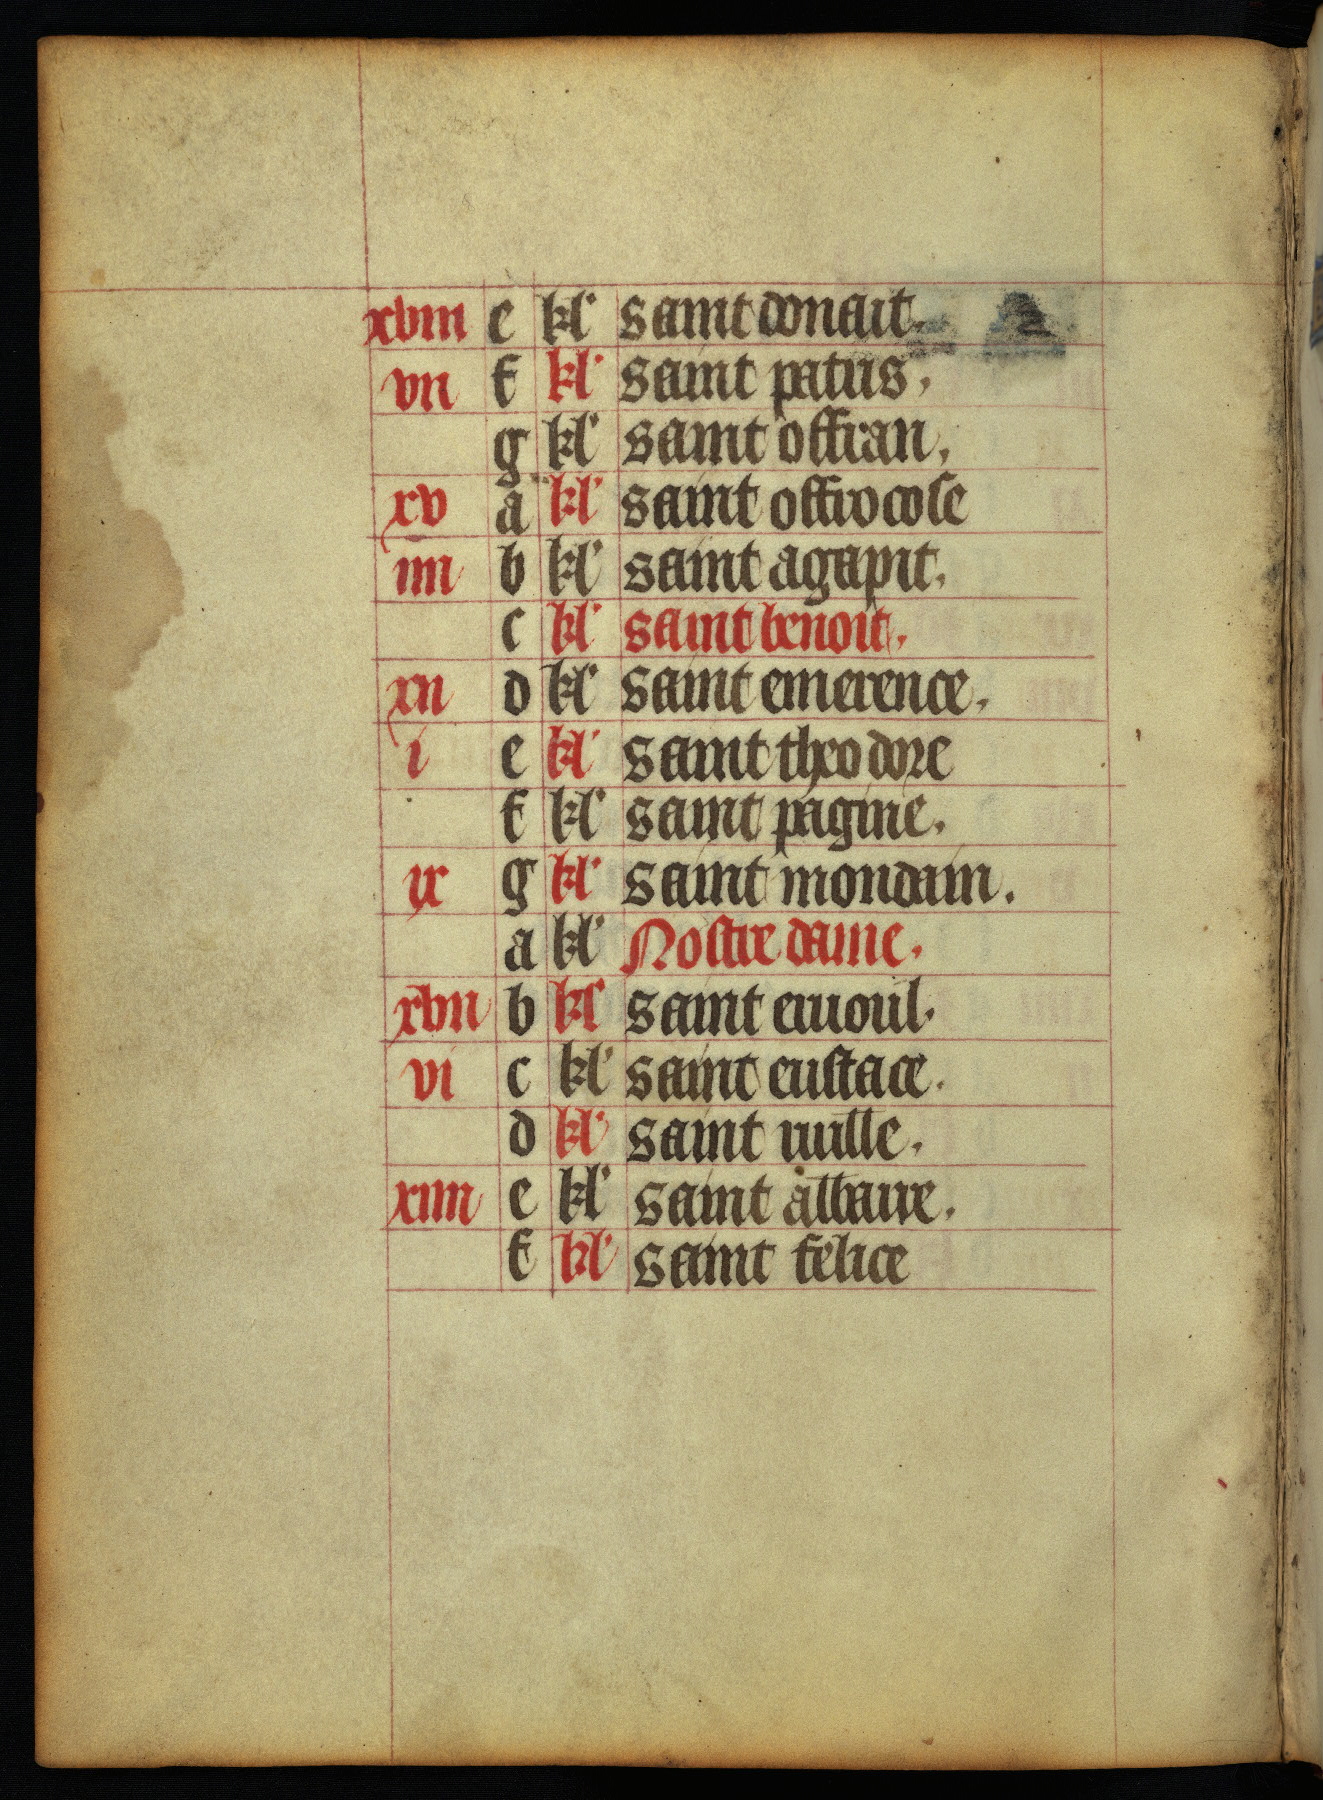 xviii e kl' saint donait.
vii f kl' saint patris,
g kl' saint offran,
xv a kl' saint offrocose
iiii b kl' saint agapit.
c kl' saint benoit,
xii d kl' saint emerence,
i e kl' saint theodore
f kl' saint pagine.
ix g kl' saint mondain.
a kl' Nostre dame.
xvii b kl' saint ernoul.
vi c kl' saint eustace.
d kl' saint
xiiii e kl' saint
f kl' saint felice